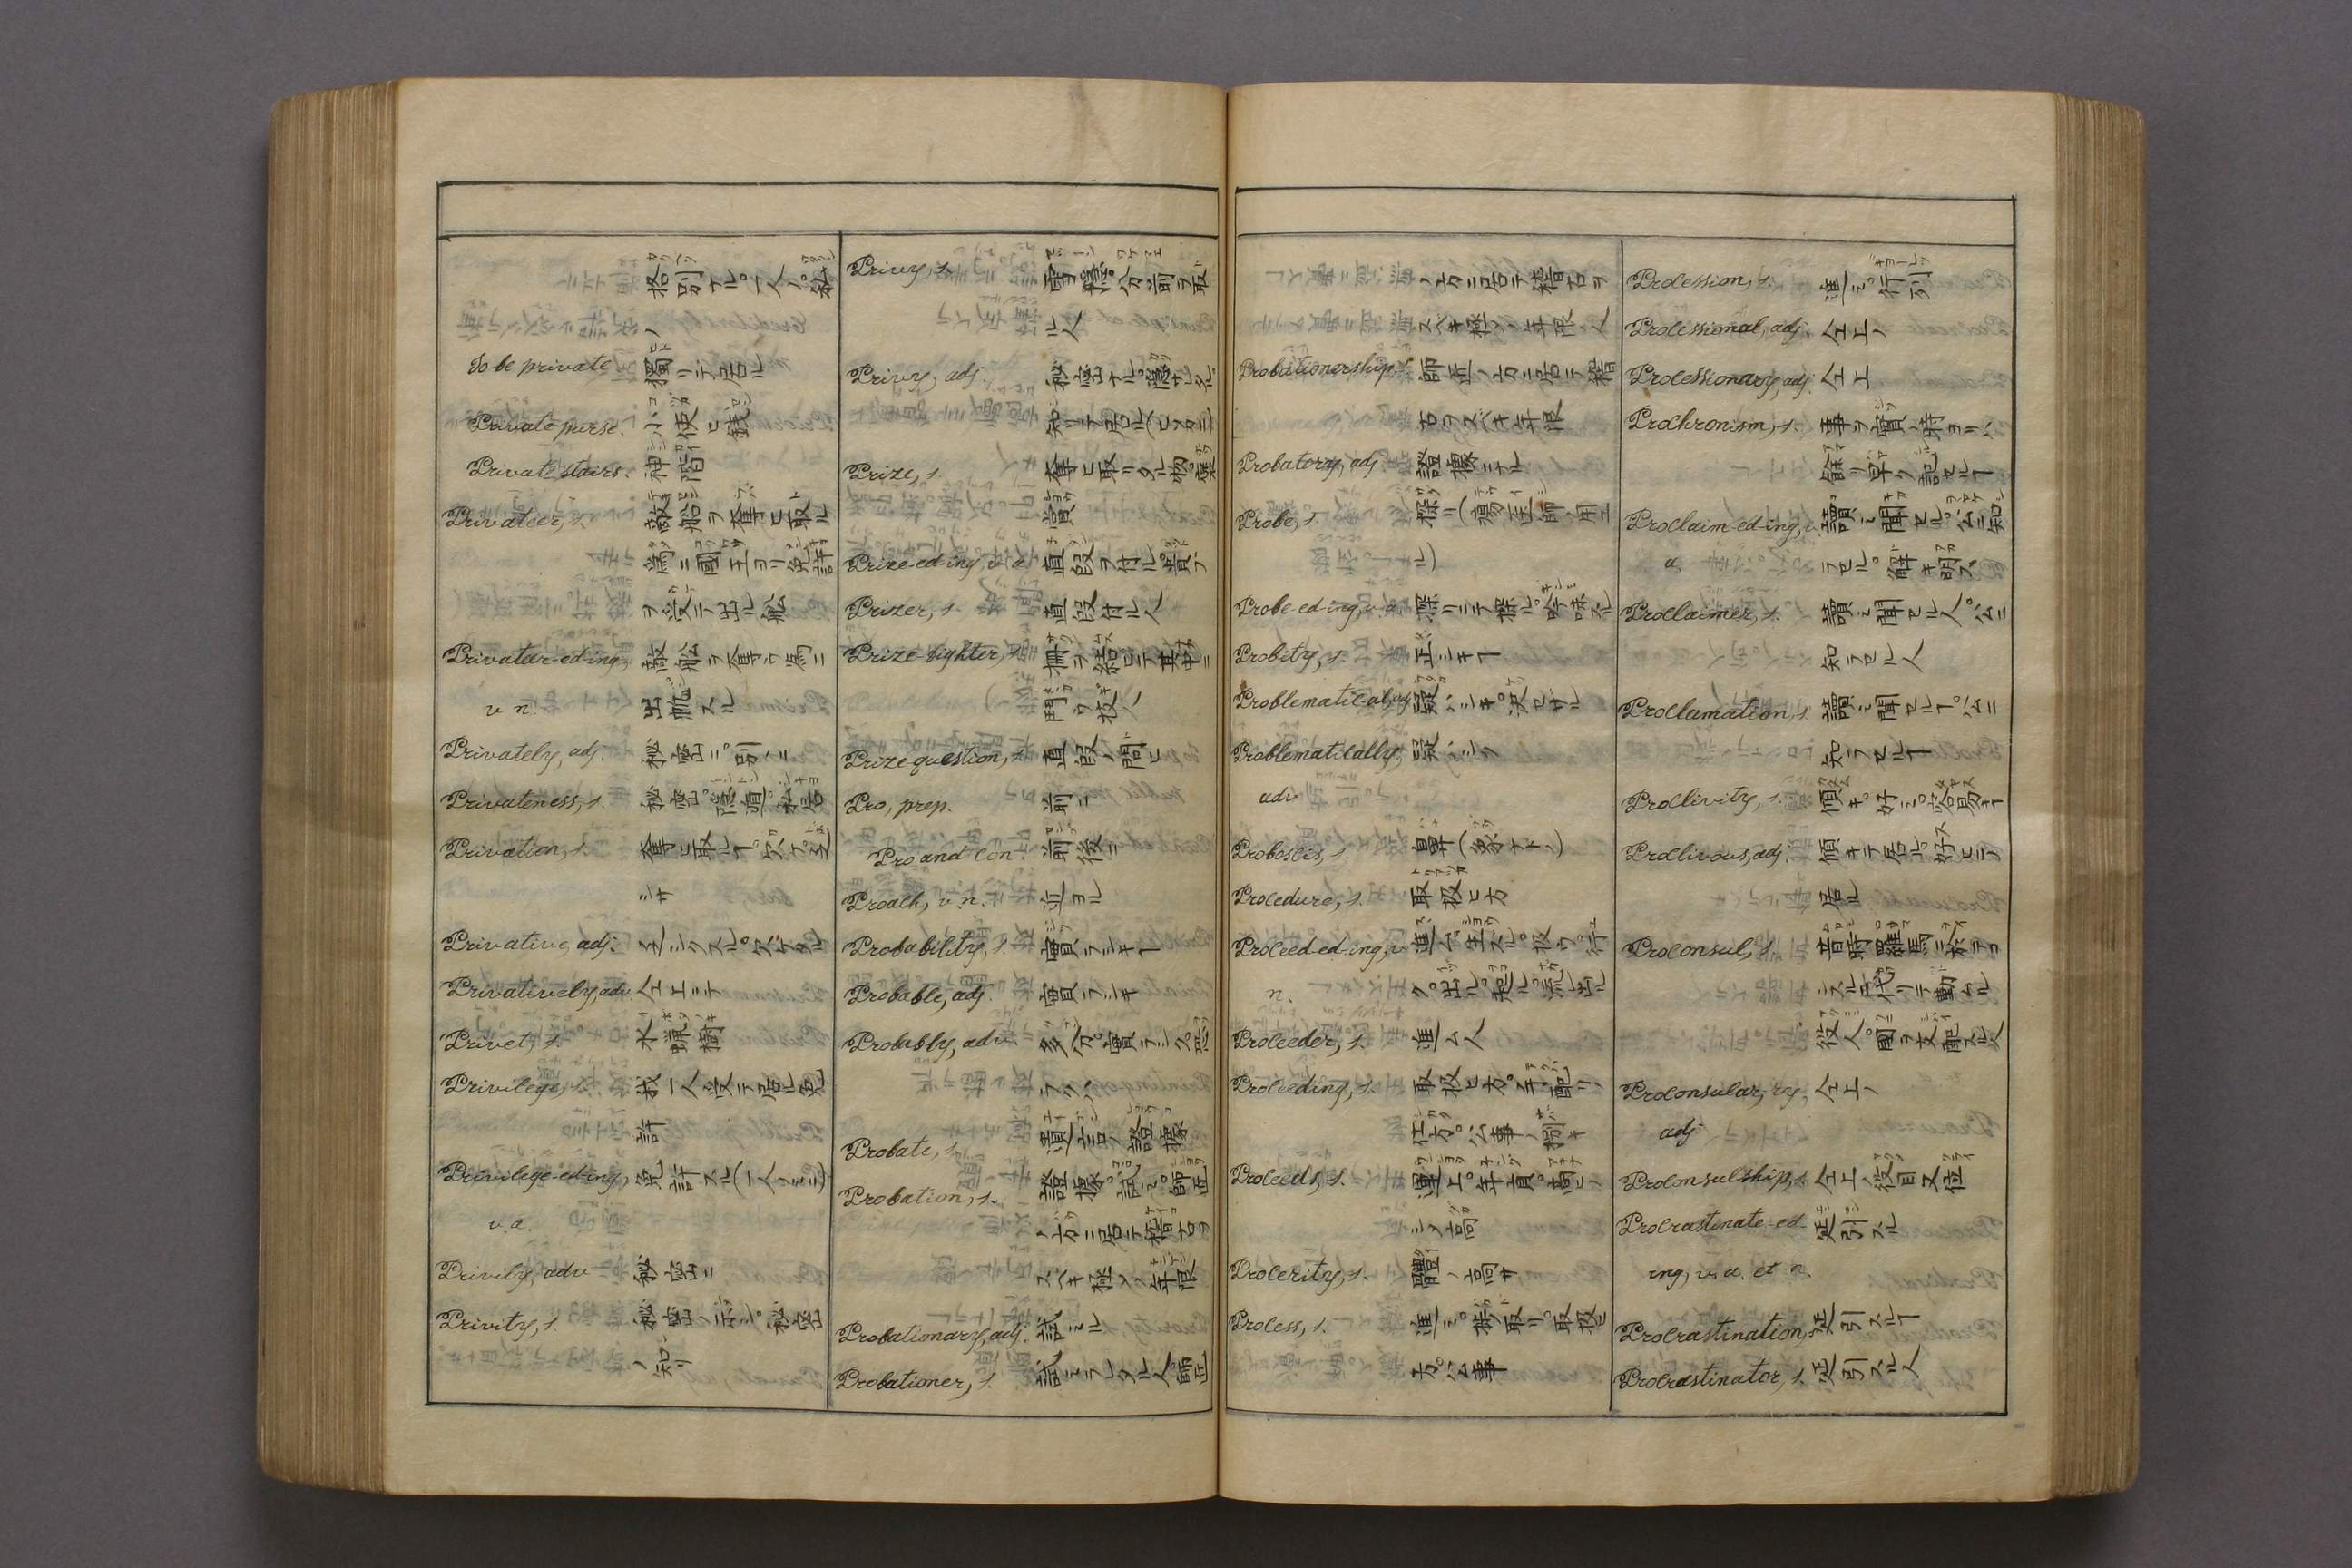 格別ナル。一人ノ。私
ノ
To be private. 獨リテ居ル
Private purse. 小使ヒ銭
Private stairs. 神階
Privateer, s. 敵船ヲ奪ヒ取ル
為ニ國王ヨリ免許
ヲ受テ出ル舩
Privateer-ed-ing, 敵舩ヲ奪ウ為ニ
v. n. 出帆スル
Privately, adj. 秘密ニ。別ニ
Privateness, s. 秘密。隠遁。私居
Privation, s. 奪ヒ取ルヿ。欠乏
Privative, adj.
Privatively, adv. 仝上ニテ
Privet, s. 水蝋樹
Privilege, s. 我一人受テ居ル免
許
Privilege-ed-ing, 免許スル(一人ノモノニ)
v. a.
Privily, adv. 秘密ニ
Privity, s. 秘密ノ示シ。秘密
ノ知リ
Privy, s. 雪隠。分前ヲ取
ル人
Privy, adj. 秘密ナル。隠サレタル
知リテ居ル(ヒソカニ)
Prize, s. 奪ヒ取リタル物。褒
賞
Prize-ed-ing, v. a. 直段ヲ付ル。貴ブ
Prizer, s. 直段付ル人
Prize-fighter, s. 柵ヲ結ヒテ其中ニ
闘ウ技人
Prize question, s. 直段ノ問ヒ
Pro, prep. 前ニ
Pro and con. 前後ニ
Proach, v. n. 近ヨル
Probability, s. 實ラシキヿ
Probable, adj. 實ラシキ
Probably, adv. 多分。實ラシク。恐
ラクハ
Probate, s. 遺言ノ證據
Probation, s. 證據。試ミ。師匠
ノ方ニ居テ稽古ヲ
スベキ極リノ年限
Probationary, adj. 試ミル
Probationer, s. 試ミラレタル人。師匠
ノ方ニ居テ稽古ヲ
スベキ極リノ年限ノ人
Probationership. 師匠ノ方ニ居テ稽
古ヲスベキ年限
Probatory, adj. 證據ニナル
Probe, s. 探リ(瘍医師ノ用ユ
ル)
Probe-ed-ing, v. a. 探リニテ探ル。吟味スル
Probity, s. 正シキヿ
Problematical, adj. 疑ハシキ。决セザル
Problematically, 疑ハシク
adv.
Proboscis, s. 鼻(象ナドノ)
Procedure, s. 取扱ヒ方
Proceed-ed-ing, v. 進ム。生ズル。扱ウ。行
n. ク。出ル。起ル。流レ出ル
Proceeder, s. 進ム人
Proceeding, s. 取扱ヒ方。手配リノ
仕方。公事ノ捌キ
Proceeds, s. 運上。年貢。
シノ高
Procerity, s. 體ノ高サ
Process, s. 進ミ。捗取リ。取扱ヒ
方。公事
Procession, s. 進ミ。行列
Processional, adj. 仝上ノ
Processionary, adj. 仝上
Prochronism, s. 事ヲ實ノ時ヨリハ
餘リ早ク記セルヿ
Proclaim-ed-ing, v. 讀ミ聞セル。公ニ知
a. ラセル。解キ明ス
Proclaimer, s. 讀ミ聞セル人。公ニ
知ラセル人
Proclamation, s. 讀ミ聞セルヿ。公ニ
知ラセルヿ
Proclivity, s. 傾キ。好ミ。容易キ
Proclivous, adj. 傾キテ居ル。好ヒテ
居ル
Proconsul, s. 昔時羅馬ニ於テコ
ンスルニ代リテ勤ムル
役人。國ヲ支配スル人
Proconsular, -ry, 仝上ノ
adj.
Proconsulship, s. 仝上ノ役目又位
Procrastinate-ed- 延引スル
ing, v. a. et n.
Procrastination, 延引スルヿ
Procrastinator, s. 延引スル人